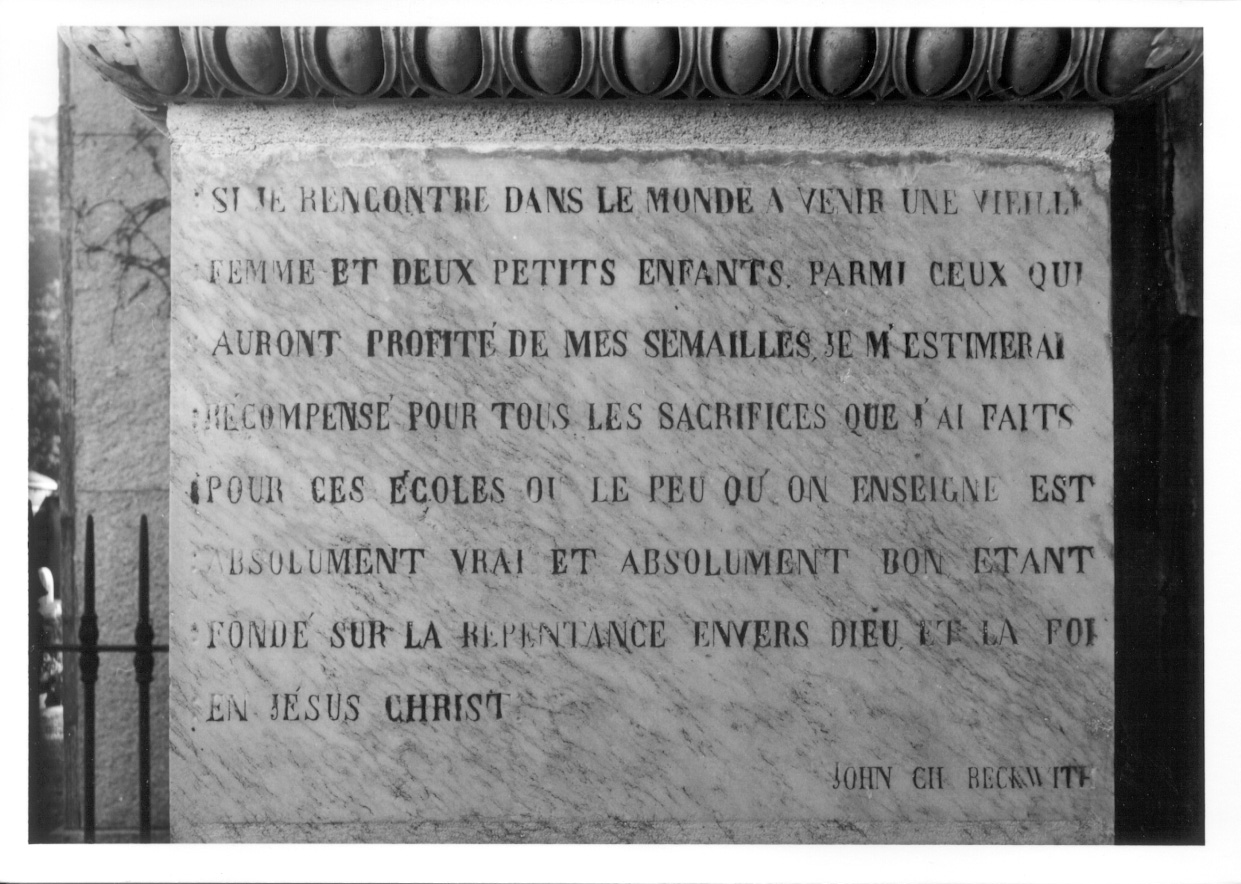 SI JE RENCONTRE DANS LE MONDE A VENIR UNE VIEILLE
FEMME ET DEUX PETITS ENFANTS, PARMI CEUX QUI
AURONT PROFITÉ DE MES SEMAILLES, JE M'ESTIMERAI
RÉCOMPENSÉ POUR TOUS LES SACRIFICES QUE J'AI FAITS
POUR CES ÉCOLES OU LE PEU QU'ON ENSEIGNE EST
ABSOLUMENT VRAI ET ABSOLUMENT BON ETANT
FONDÉ SUR LA REPENTANCE ENVERS DIEU, ET LA FOI
EN JÉSUS CHRIST
JOHN CH BECKWITH